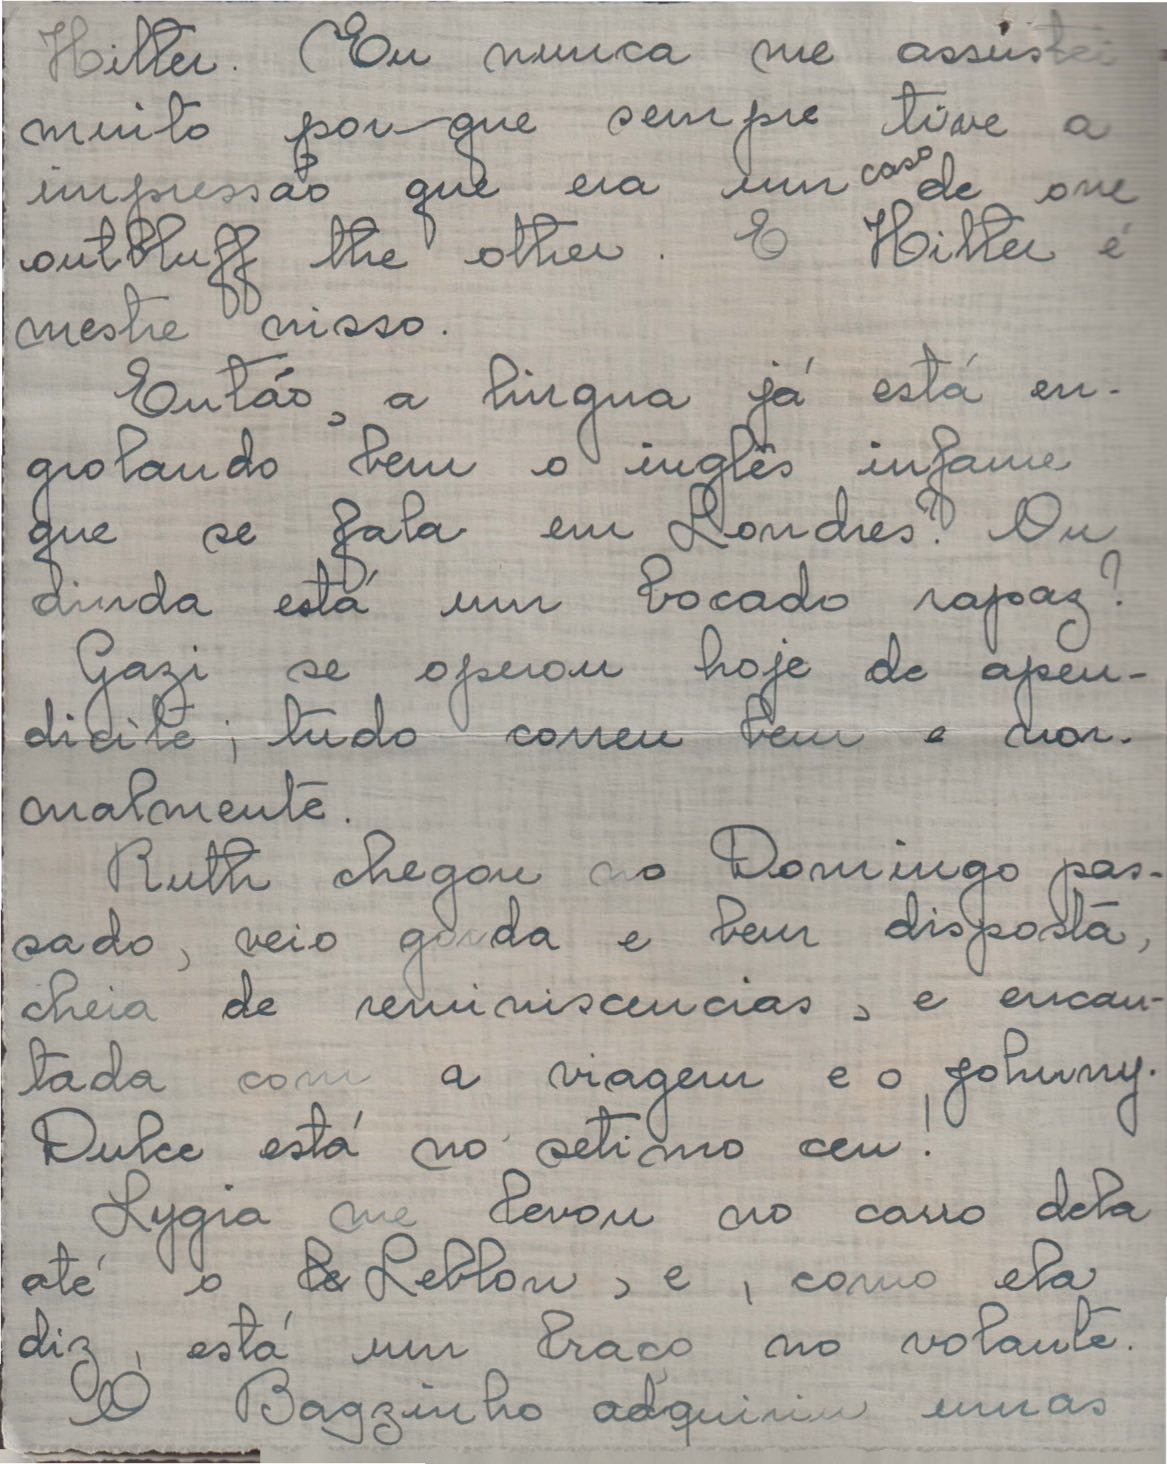 Hitler. (Eu nunca me assustei
muito por que sempre tive a
impressão que era um caso de one
outbluff the other. E Hitler é
mestre nisso.
Então, a lingua já está en-
grolando bem o inglês infame
que se fala em Londres? Ou
dinda está um bocado rapaz?
Gazi se operou hoje de apen-
dicite; tudo correu bem e nor-
malmente.
Ruth chegou no Domingo pas-
sado, veio gorda e bem disposta,
cheia de reminiscencias, e encan-
tada com a viagem e o Johnny.
Dulce está no setimo ceu!
Lygia me levou no carro dela
até o le Leblon, e, como ela
diz, está um braço no volante.
O Bagzinho adquiriu umas